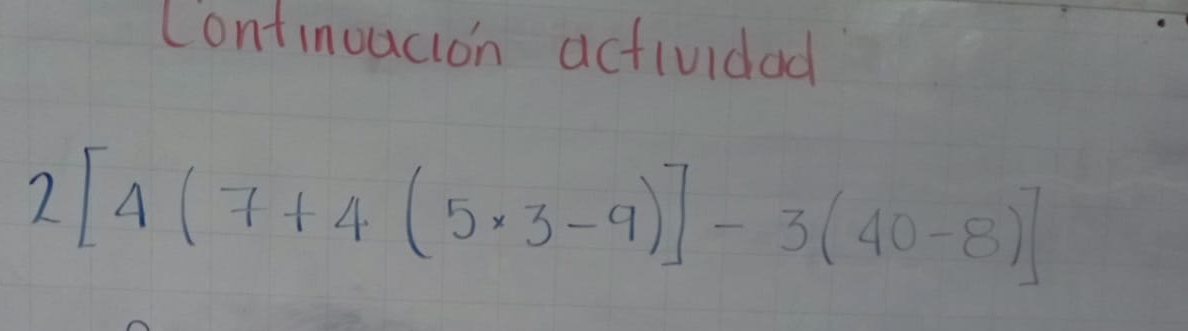 Continuación actividad
2[4(7+4(5×3-9)]-3(40-8)]